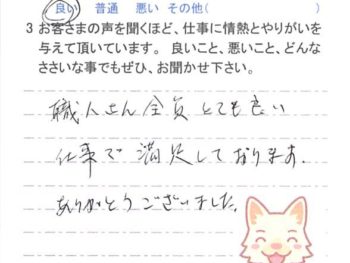 良い 普通 悪い その他( )
3 お客さまの声を聞くほど、仕事に情熱とやりがいを
与えて頂いています。 良いこと、悪いこと、どんな
ささいな事でもぜひ、お聞かせ下さい。
職人さん全員とても良い
仕事で満足しております。
ありがとうございました。